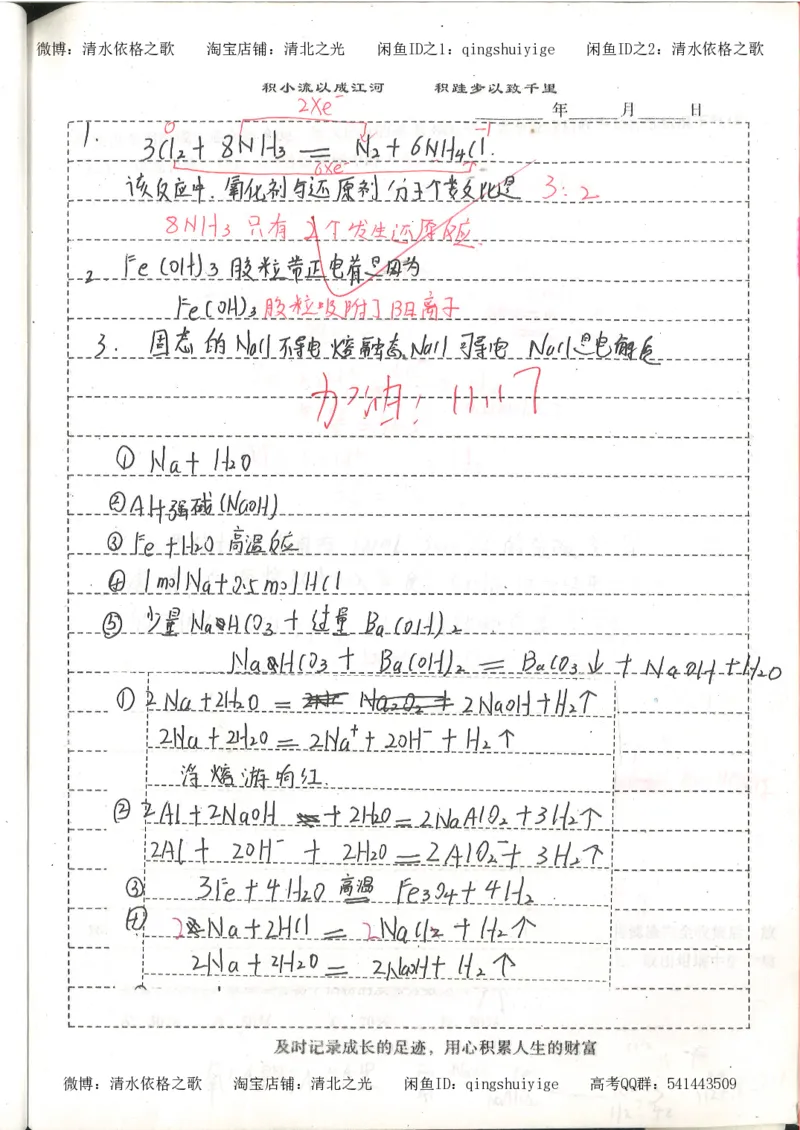 微博：清水依格之歌 淘宝店铺：清北之光 闲鱼ID之1：qingshuiyige 闲鱼ID之2：清水依格之歌
积小流以成江河 积跬步以致千里
年 月 日
2Xe⁻
0 -1
1. 3Cl₂ + 8NH₃ = N₂ + 6NH₄Cl.
6Xe⁻
该反应中,氧化剂与还原剂分子个数之比是 3:2
8NH₃ 只有 2个发生还原反应.
2 Fe(OH)₃ 胶粒带正电荷是因为
Fe(OH)₃ 胶粒吸附了阳离子
3. 固态的NaCl不导电 熔融态NaCl可导电 NaCl是电解质
加油! 11.17
① Na + H₂O
②Al+强碱(NaOH)
③ Fe + H₂O 高温反应
④ 1molNa+0.5molHCl
⑤ 少量 NaHCO₃ + 过量 Ba(OH)₂
NaHCO₃ + Ba(OH)₂ = BaCO₃↓ + NaOH + H₂O
① 2Na + 2H₂O = 2NaOH + H₂↑
2Na + 2H₂O = 2Na⁺ + 2OH⁻ + H₂↑
浮熔游响红.
② 2Al + 2NaOH + 2H₂O = 2NaAlO₂ + 3H₂↑
2Al + 2OH⁻ + 2H₂O = 2AlO₂⁻ + 3H₂↑
③ 3Fe + 4H₂O 高温 Fe₃O₄ + 4H₂
④ 2Na + 2HCl = 2NaCl + H₂↑
2Na + 2H₂O = 2NaOH + H₂↑
及时记录成长的足迹，用心积累人生的财富
微博：清水依格之歌 淘宝店铺：清北之光 闲鱼ID：qingshuiyige 高考QQ群：541443509